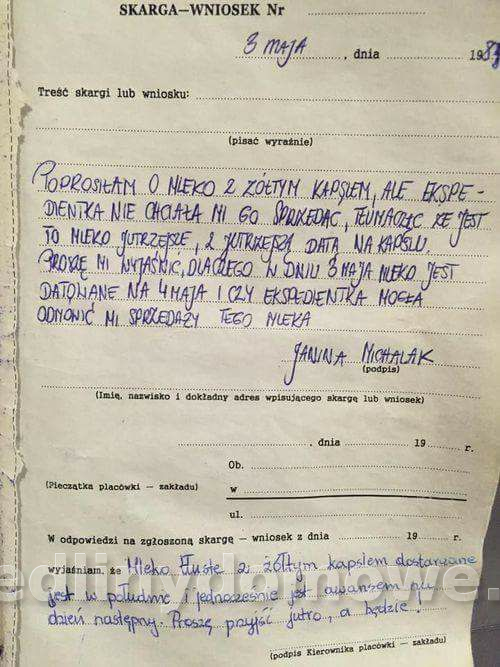 SKARGA—WNIOSEK Nr
3 MAJA , dnia 198
Treść skargi lub wniosku:
(pisać wyraźnie)
POPROSIŁAM O MLEKO Z ŻÓŁTYM KAPSLEM, ALE EKSPE-
DIENTKA NIE CHCIAŁA MI GO SPRZEDAĆ, TŁUMACZĄC ŻE JEST
TO MLEKO JUTRZEJSZE, Z JUTRZEJSZĄ DATĄ NA KAPSLU.
PROSZĘ MI WYJAŚNIĆ, DLACZEGO W DNIU 3 MAJA MLEKO JEST
DATOWANE NA 4 MAJA I CZY EKSPEDIENTKA MOGŁA
ODMÓWIĆ MI SPRZEDAŻY TEGO MLEKA
JANINA MICHALAK
(podpis)
(Imię, nazwisko i dokładny adres wpisującego skargę lub wniosek)
, dnia 19 r.
Ob.
(Pieczątka placówki — zakładu) w
ul.
W odpowiedzi na zgłoszoną skargę — wniosek z dnia 19 r.
wyjaśniam, że Mleko tłuste z żółtym kapslem dostarczane
jest w południe i jednocześnie jest awansem na
dzień następny. Proszę przyjść jutro, a będzie!
(podpis Kierownika placówki — zakładu)